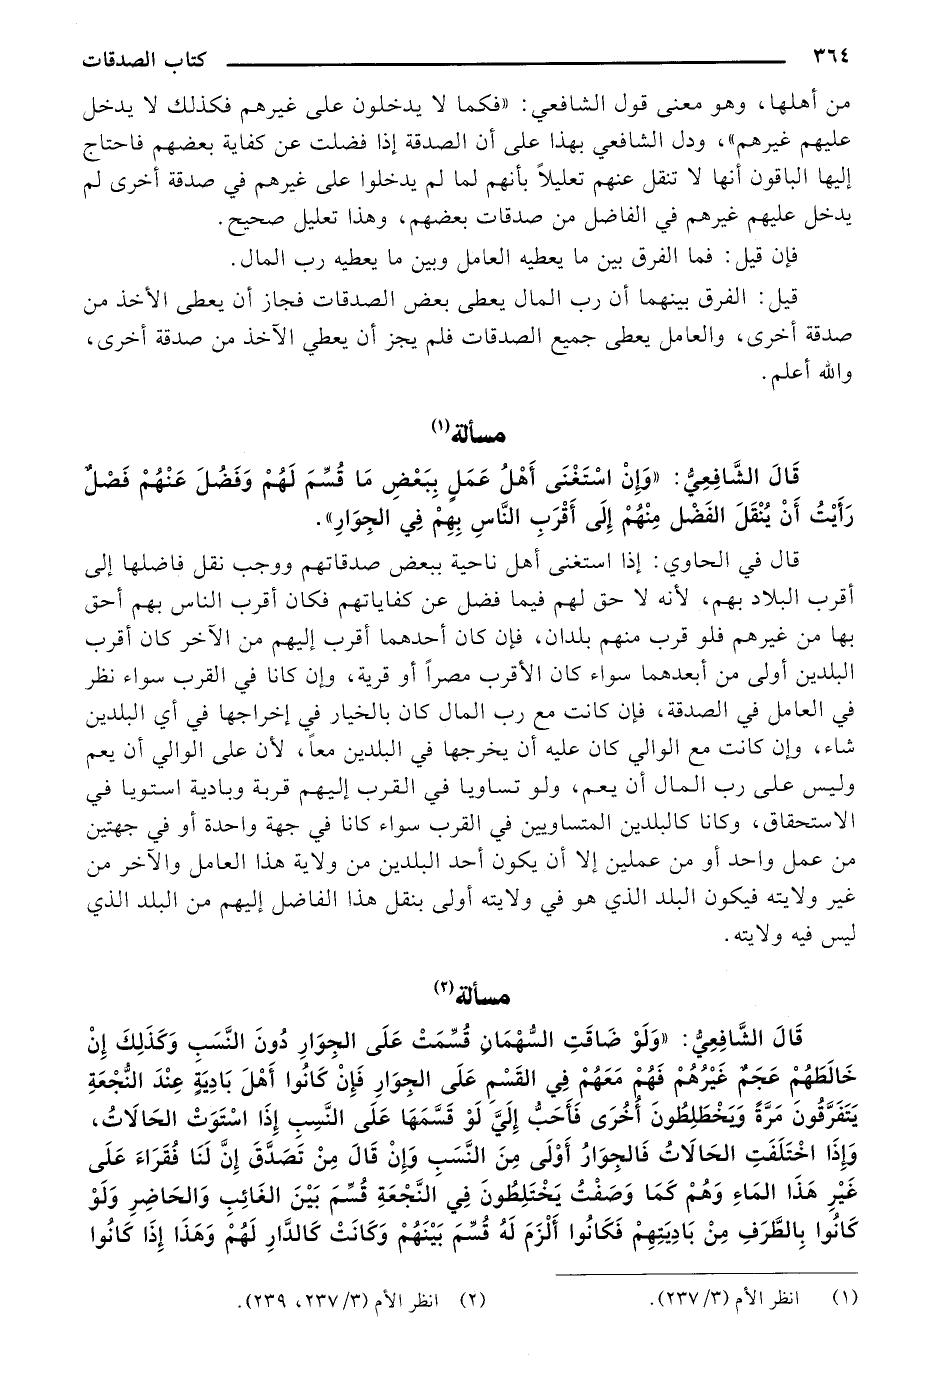 ٣٦٤ كتاب الصدقات
من أهلها، وهو معنى قول الشافعي: «فكما لا يدخلون على غيرهم فكذلك لا يدخل
عليهم غيرهم»، ودل الشافعي بهذا على أن الصدقة إذا فضلت عن كفاية بعضهم فاحتاج
إليها الباقون أنها لا تنقل عنهم تعليلاً بأنهم لما لم يدخلوا على غيرهم في صدقة أخرى لم
يدخل عليهم غيرهم في الفاضل من صدقات بعضهم، وهذا تعليل صحيح.
فإن قيل: فما الفرق بين ما يعطيه العامل وبين ما يعطيه رب المال.
قيل: الفرق بينهما أن رب المال يعطى بعض الصدقات فجاز أن يعطى الأخذ من
صدقة أخرى، والعامل يعطى جميع الصدقات فلم يجز أن يعطي الآخذ من صدقة أخرى،
والله أعلم.
مسألة(١)
قَالَ الشَّافِعِيُّ: «وَإِنْ اسْتَغْنَى أَهْلُ عَمَلٍ بِبَعْضِ مَا قُسِّمَ لَهُمْ وَفَضُلَ عَنْهُمْ فَضْلٌ
رَأَيْتُ أَنْ يُنْقَلَ الفَضْل مِنْهُمْ إِلَى أَقْرَبِ النَّاسِ بِهِمْ فِي الجِوَارِ».
قال في الحاوي: إذا استغنى أهل ناحية ببعض صدقاتهم ووجب نقل فاضلها إلى
أقرب البلاد بهم، لأنه لا حق لهم فيما فضل عن كفاياتهم فكان أقرب الناس بهم أحق
بها من غيرهم فلو قرب منهم بلدان، فإن كان أحدهما أقرب إليهم من الآخر كان أقرب
البلدين أولى من أبعدهما سواء كان الأقرب مصراً أو قرية، وإن كانا في القرب سواء نظر
في العامل في الصدقة، فإن كانت مع رب المال كان بالخيار في إخراجها في أي البلدين
شاء، وإن كانت مع الوالي كان عليه أن يخرجها في البلدين معاً، لأن على الوالي أن يعم
وليس على رب المال أن يعم، ولو تساويا في القرب إليهم قربة وبادية استويا في
الاستحقاق، وكانا كالبلدين المتساويين في القرب سواء كانا في جهة واحدة أو في جهتين
من عمل واحد أو من عملين إلا أن يكون أحد البلدين من ولاية هذا العامل والآخر من
غير ولايته فيكون البلد الذي هو في ولايته أولى بنقل هذا الفاضل إليهم من البلد الذي
ليس فيه ولايته.
مسألة(٢)
قَالَ الشَّافِعِيُّ: «وَلَوْ ضَاقَتِ السُّهْمَانِ قُسِّمَتْ عَلَى الجِوَارِ دُونَ النَّسَبِ وَكَذَلِكَ إِنْ
خَالَطَهُمْ عَجَمٌ غَيْرُهُمْ فَهُمْ مَعَهُمْ فِي القَسْمِ عَلَى الجِوَارِ فَإِنْ كَانُوا أَهْلَ بَادِيَةٍ عِنْدَ النُّجْعَةِ
يَتَفَرَّقُونَ مَرَّةً وَيَخْطَلِطُونَ أُخْرَى فَأَحَبُّ إِلَيَّ لَوْ قَسَّمَهَا عَلَى النَّسِبِ إِذَا اسْتَوَتْ الحَالَاتُ،
وَإِذَا اخْتَلَفَتِ الحَالَاتُ فَالجِوَارُ أَوْلَى مِنَ النَّسَبِ وَإِنْ قَالَ مِنْ تَصَدَّقَ إِنَّ لَنَا فُقَرَاءَ عَلَى
غَيْرِ هَذَا المَاءِ وَهُمْ كَمَا وَصَفْتُ يَخْتَلِطُونَ فِي النَّجْعَةِ قُسِّمَ بَيْنَ الغَائِبِ وَالحَاضِرِ وَلَوْ
كَانُوا بِالطَّرَفِ مِنْ بَادِيَتِهِمْ فَكَانُوا أَلْزَمَ لَهُ قُسِّمَ بَيْنَهُمْ وَكَانَتْ كَالدَّارِ لَهُمْ وَهَذَا إِذَا كَانُوا
(١) انظر الأم (٣/ ٢٣٧). (٢) انظر الأم (٣/ ٢٣٧، ٢٣٩).